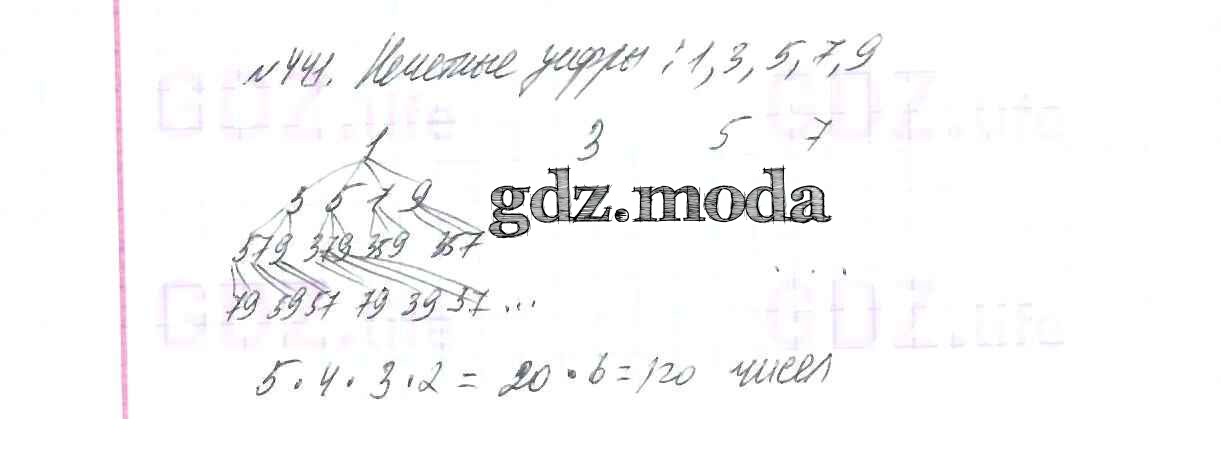 №441. Нечетные цифры: 1, 3, 5, 7, 9
GDZ.life GDZ.life
1 3 5 7
gdz.moda
3 5 7 9
579 379 359 357
79 59 57 79 39 37 ...
. . .
GDZ.life GDZ.life
5 · 4 · 3 · 2 = 20 · 6 = 120 чисел